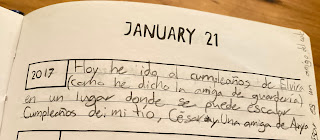 JANUARY 21
2017 Hoy he ido al cumpleaños de Elvira
(como he dicho la amiga de guarderia)
en un lugar donde se puede escalar
Cumpleaños de: mi tio, Cesar y una amiga de